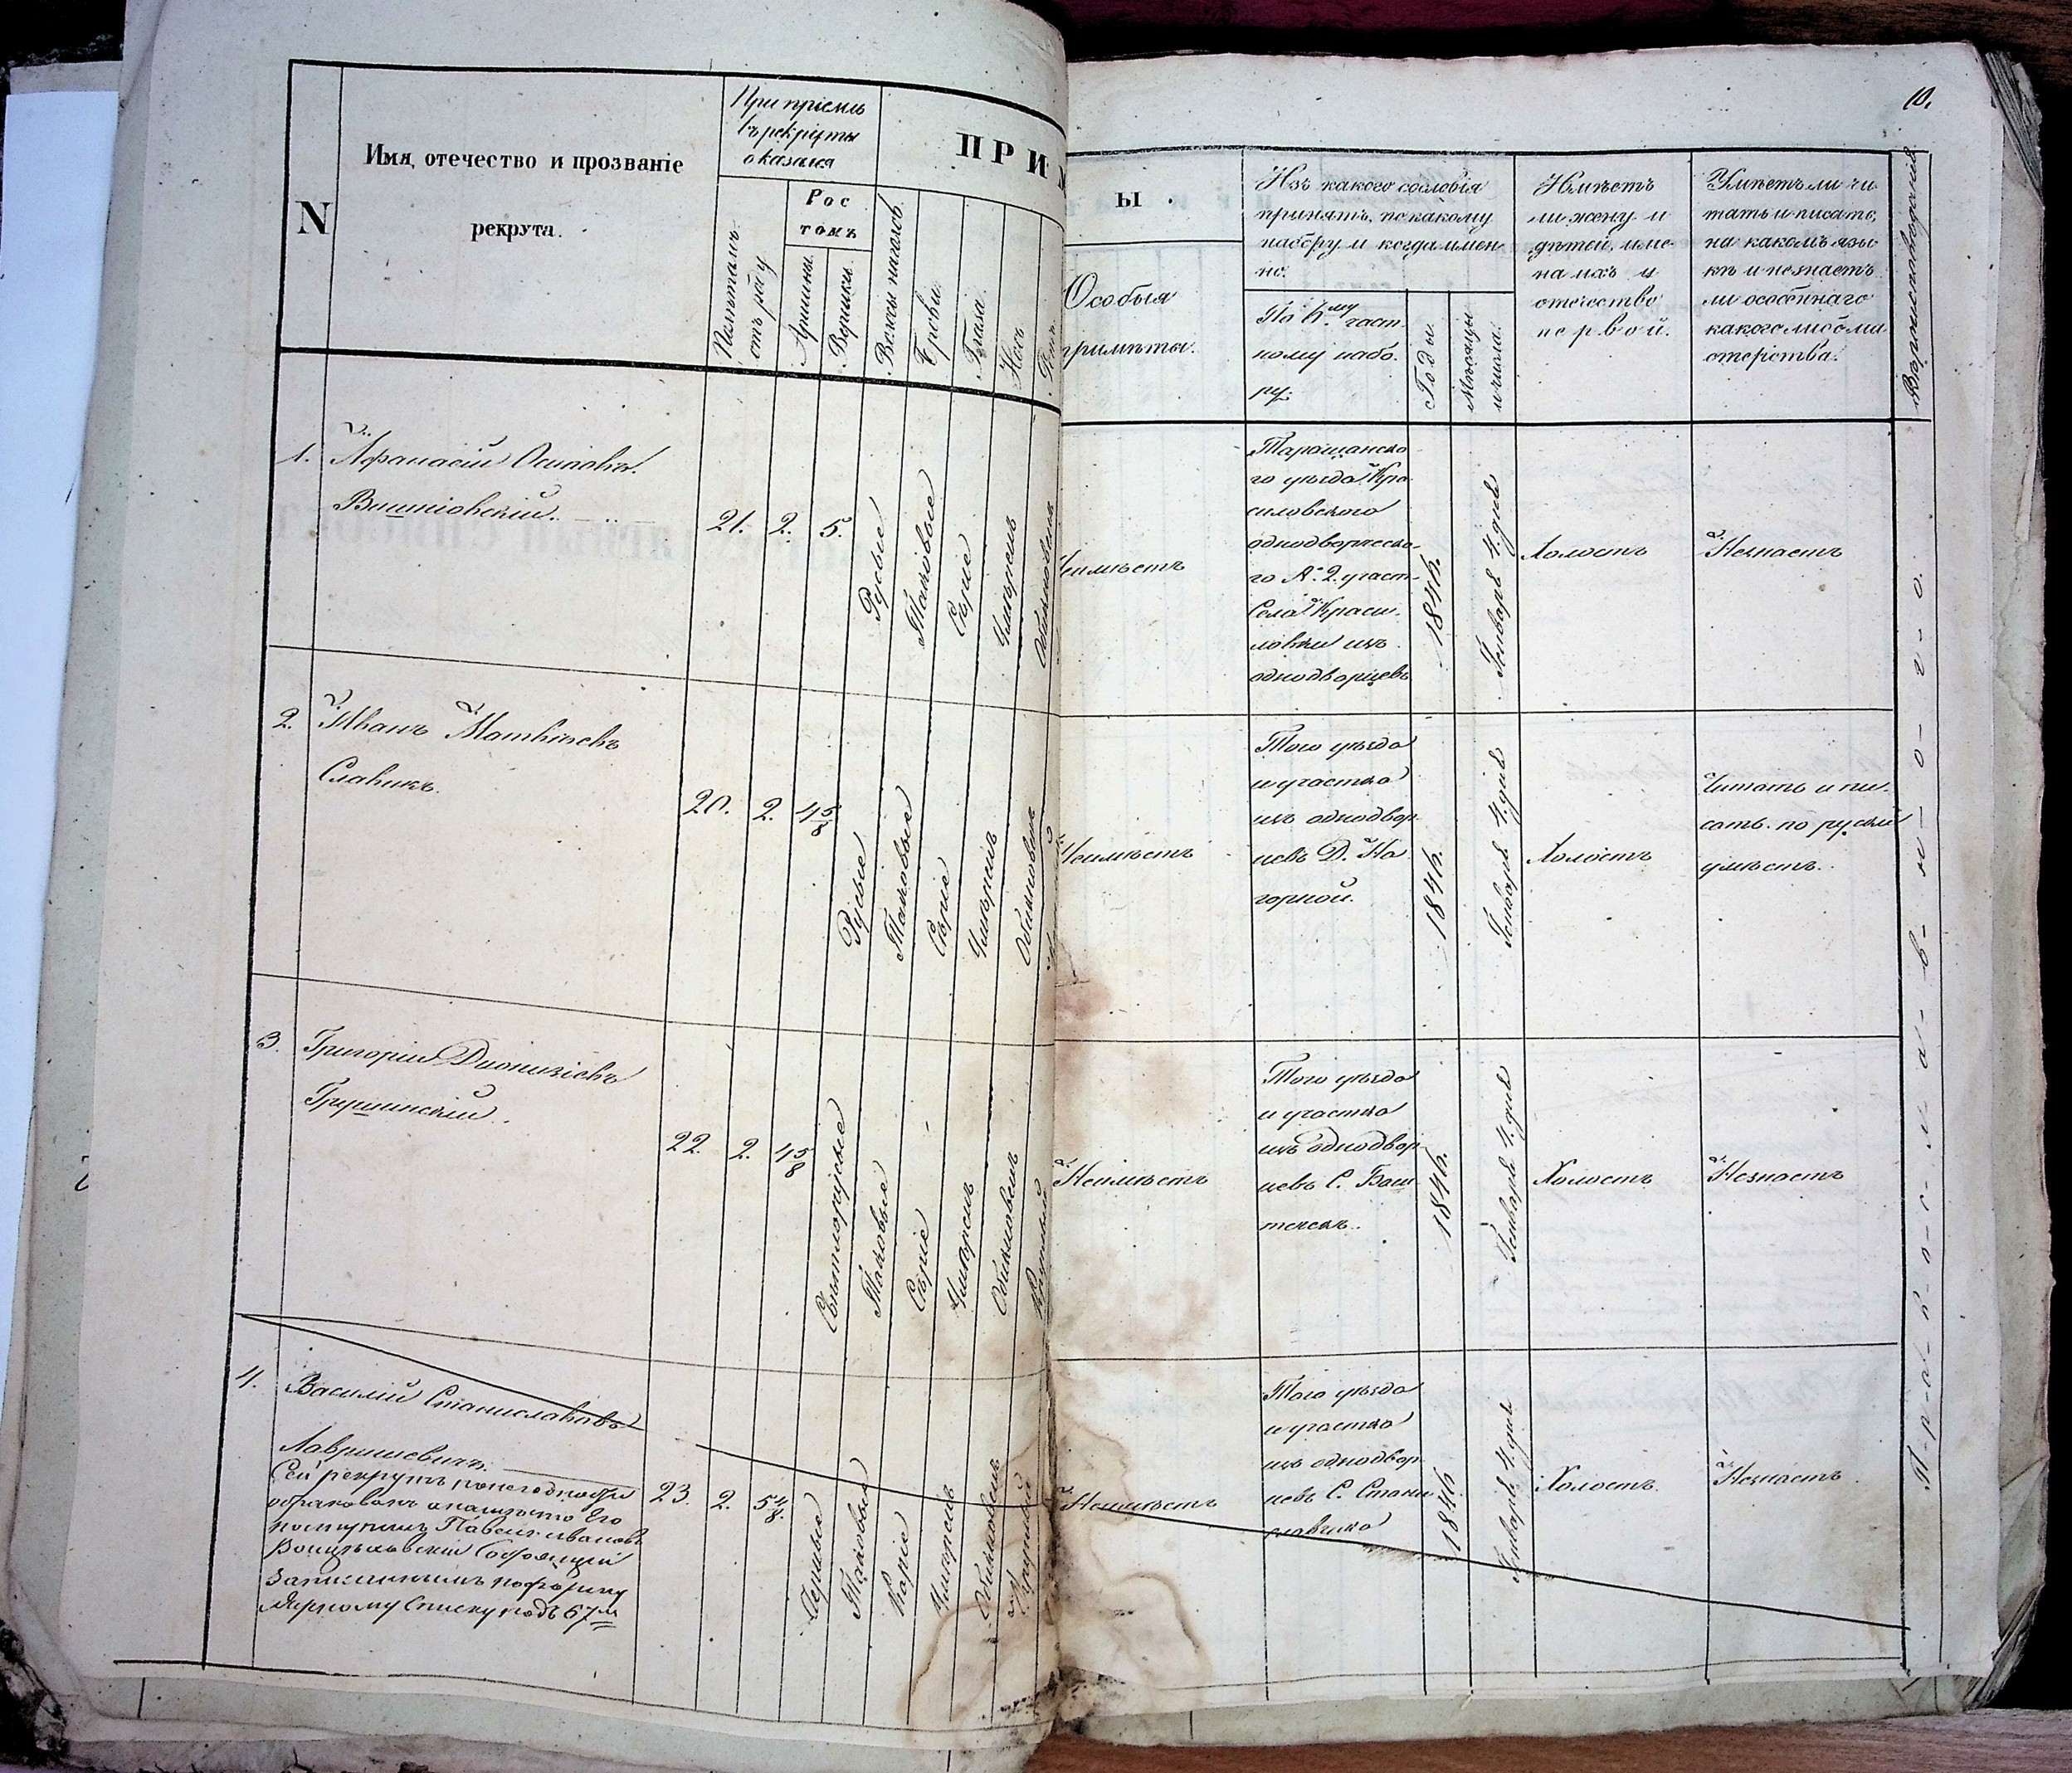 10.
N
Имя, отечество и прозваніе
рекрута.
При пріемѣ
въ рекруты
оказался
ПРИ
Ы.
Рос
томъ
Аршины.
Вершки.
Волосы на головѣ
Брови.
Глаза.
Носъ
Особыя
примѣты.
Изъ какого сословія
принятъ, по какому
набору и когда имен
но.
По 6му част.
ному набо.
ру.
Годы.
Мѣсяцы
и числа.
Имѣетъ
ли жену и
дѣтей, име
на ихъ и
отечество
первой.
Умѣетъ ли чи
тать и писать,
на какомъ язы
кѣ и незнаетъ
ли особеннаго
какого либо ма
стерства.
Вѣроисповѣданіе
1.
Афанасій Осиповъ
Вишніовскій.
21.
2.
5.
Русые
Таковые
Сѣріе
Умѣренъ
Обыкновенъ
Неимѣетъ
Таращанска
го уѣзда Кра
силовского
однодворческо-
го №. 2. участ.
Села Краси.
ловки изъ
однодворцевъ
1846.
Генваря 4. дня
Холостъ
Незнаетъ
2.
Иванъ Матвѣевъ
Славикъ.
20.
2.
4 5/8
Русые
Таковые
Сѣріе
Умѣренъ
Обыкновенъ
Неимѣетъ
Того уѣзда
и участка
изъ однодвор
цевъ Д. На
горной.
1846.
Генваря 4. дня
Холостъ
Читать и пи.
сать по руски
умѣетъ.
3.
Григорій Дионизіевъ
Грушинскій.
22.
2.
4 5/8
Свѣтлорусые
Таковые
Сѣріе
Умѣренъ
Обыкновенъ
Неимѣетъ
Того уѣзда
и участка
изъ однодвор
цевъ С. Баш
течекъ.
1846.
Генваря 4. дня
Холостъ
Незнаетъ
4.
Василій Станиславовъ
Лавришевичъ.
Сей рекрутъ
поступилъ Павелъ Ивановъ
Состоящій
Списку подъ 67 м
23.
2.
5 4/8.
Черные
Таковые
Каріе
Умѣренъ
Обыкновенъ
Круглый
Неимѣетъ
Того уѣзда
и участка
изъ однодвор
цевъ С. Стани
славчика
1846.
Генваря 4. дня
Холостъ.
Незнаетъ.
П-р-а-в-о-с-л-а-в-н-о-г-о.